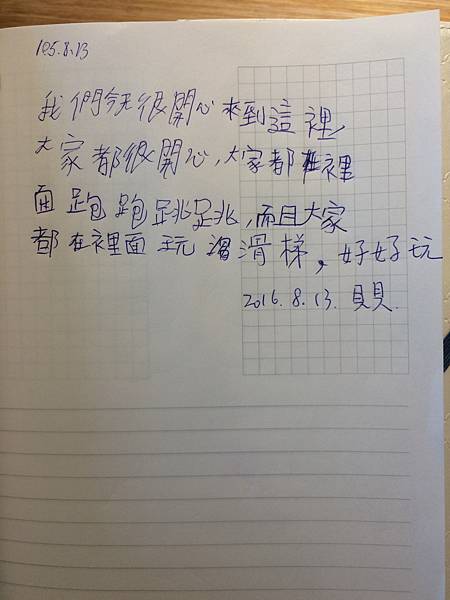 105.8.13
我們今天很開心來到這裡,
大家都很開心,大家都在裡
面跑跑跳跳,而且大家
都在裡面玩滑梯,好好玩
2016.8.13. 貝貝.